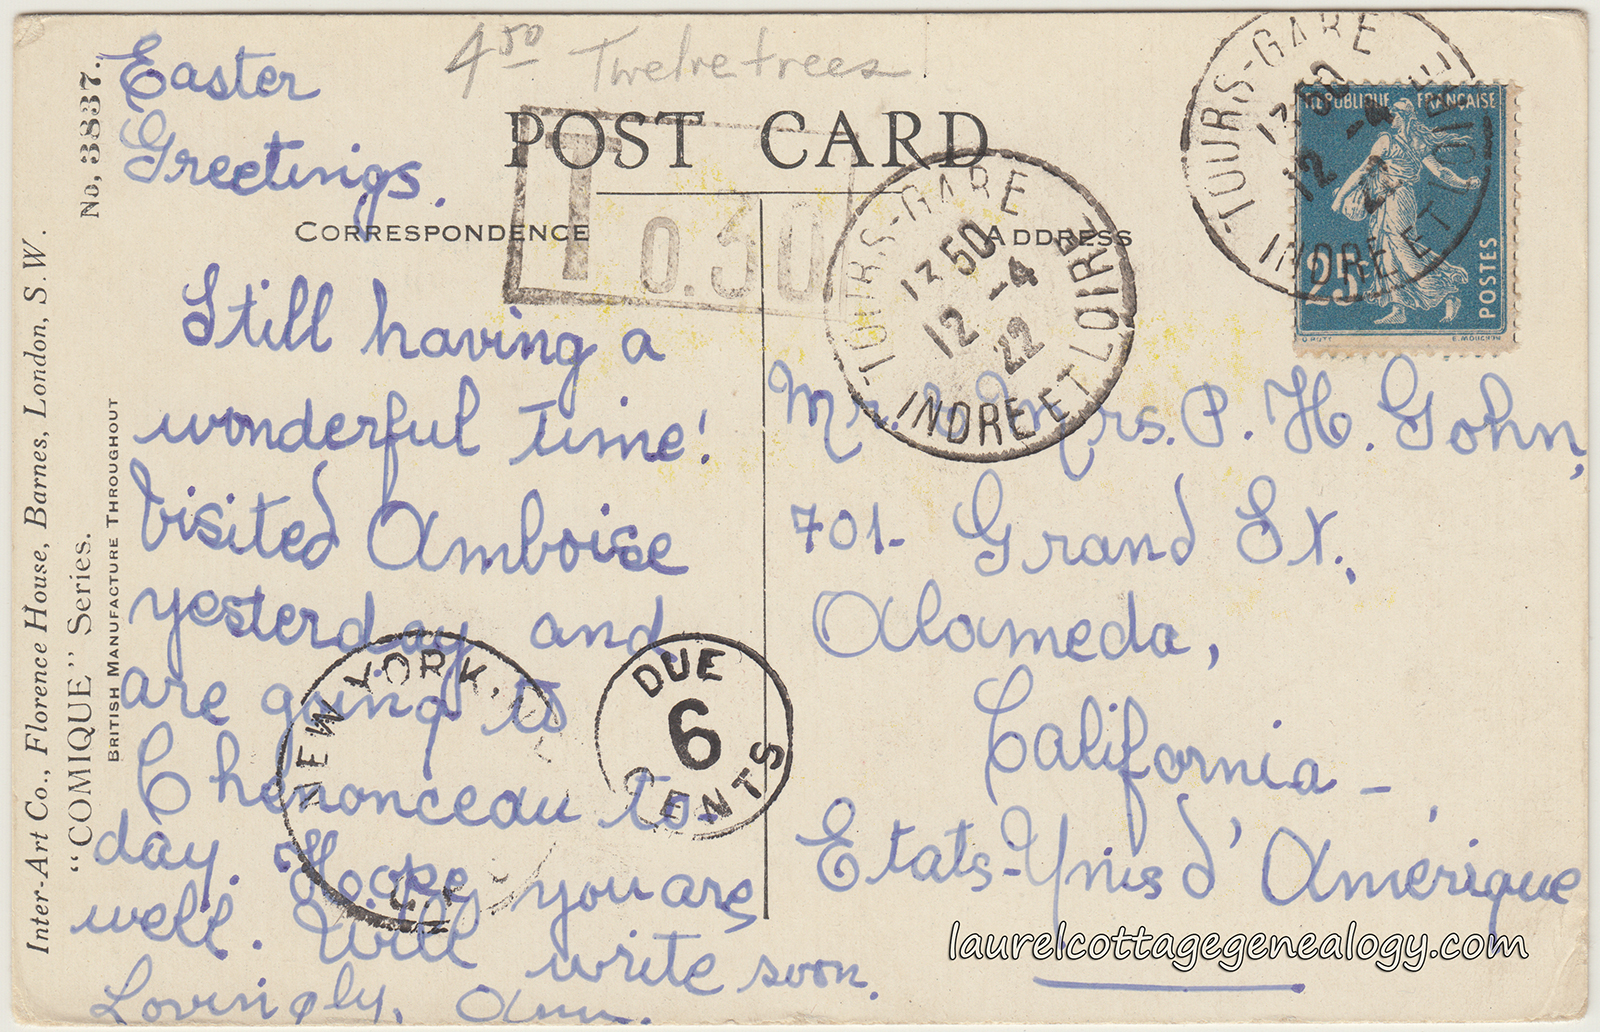 4 50 Twelvetrees
POST CARD
CORRESPONDENCE
ADDRESS
No, 3337.
Inter-Art Co., Florence House, Barnes, London, S.W.
"COMIQUE" Series.
BRITISH MANUFACTURE THROUGHOUT
Easter
Greetings.
Still having a
wonderful time!
Visited Amboise
yesterday and
are going to
Chenonceau to-
day. Hope you are
well. Will write soon.
Lovingly, Ann.
T 0.30
TOURS-GARE
13 50
12 -4
22
INDRE ET LOIRE
TOURS-GARE
13 50
12 -4
22
INDRE ET LOIRE
REPUBLIQUE FRANÇAISE
25c
POSTES
Mr. & Mrs. P. H. Gohn,
701- Grand St.,
Alameda,
California-
Etats-Unis d'Amérique
NEW YORK, N.Y.
DUE
6
CENTS
laurelcottagegenealogy.com